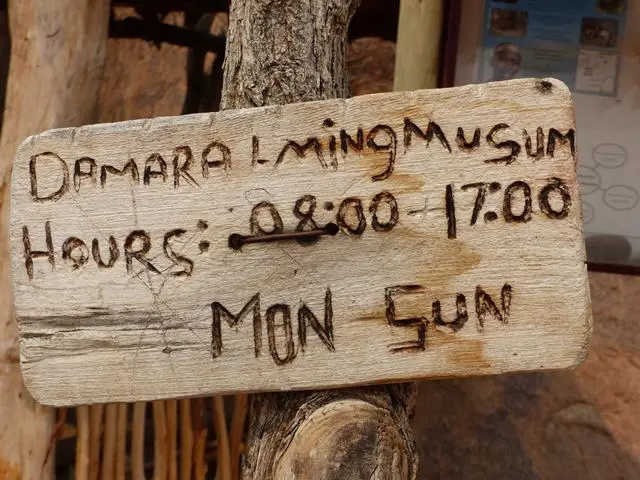 DAMARA LmiNgMuSUM
HOURS: 08:00-17:00
MON SUN